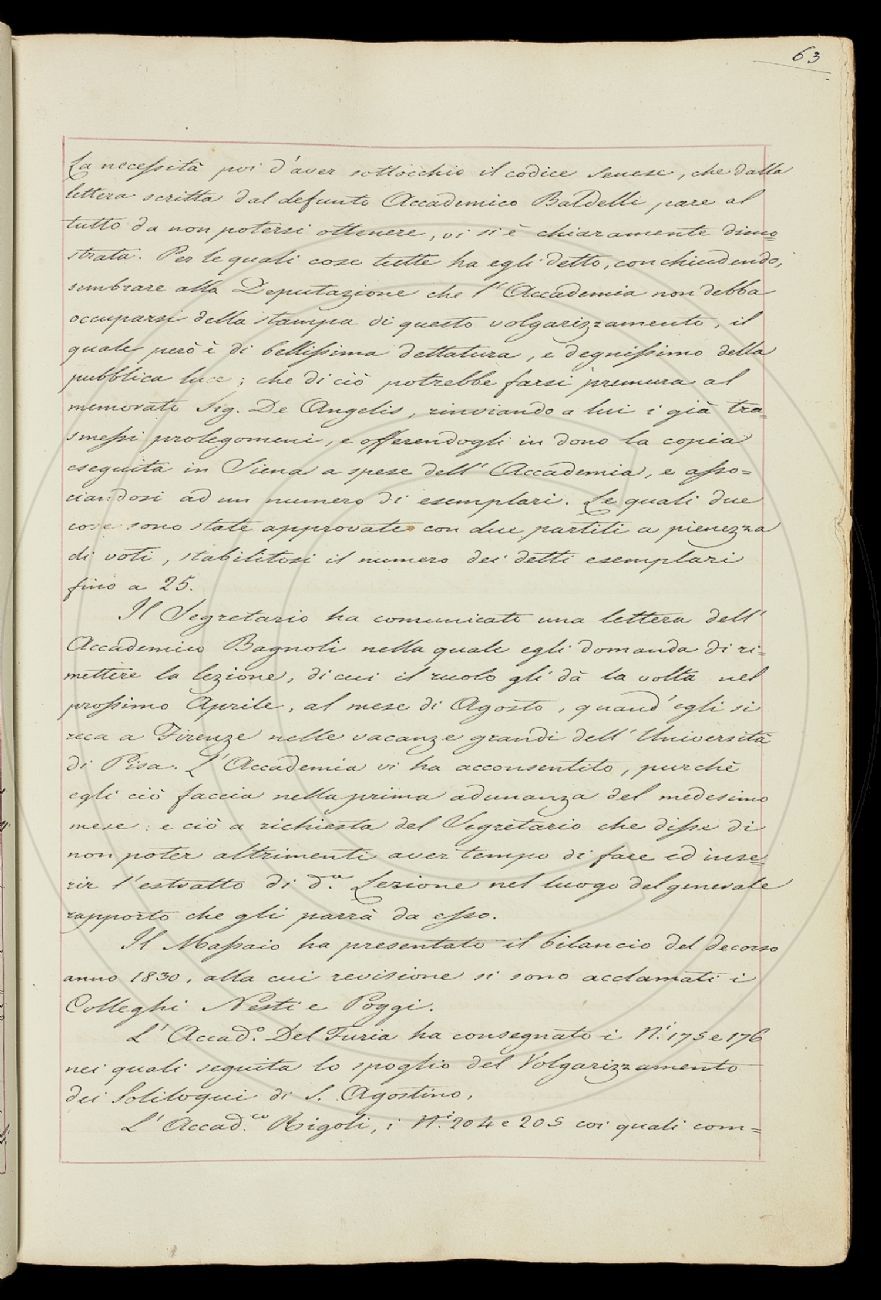 63
La necessità poi d'aver sottocchio il codice Senese, che dalla
lettera scritta dal defunto Accademico Baldelli, pare al
tutto da non potersi ottenere, vi si è chiaramente dimo=
strata. Per le quali cose tutte ha egli detto, conchiudendo,
sembrare alla Deputazione che l'Accademia non debba
occuparsi della stampa di questo volgarizzamento, il
quale però è di bellissima dettatura, e degnissimo della
pubblica luce; che di ciò potrebbe farsi premura al
memorato Sig. De Angelis, rinviando a lui i già tra=
smessi prolegomeni, e offerendogli in dono la copia
eseguita in Siena a spese dell'Accademia, e asso=
ciandosi ad un numero di esemplari. Le quali due
cose sono state approvate con due partiti a pienezza
di voti, stabilitosi il numero dei detti esemplari
fino a 25.
Il Segretario ha comunicato una lettera dell'
Accademico Bagnoli nella quale egli domanda di ri=
mettere la lezione, di cui il ruolo gli dà la volta nel
prossimo Aprile, al mese di Agosto, quand'egli si
reca a Firenze nelle vacanze grandi dell'Università
di Pisa. L'Accademia vi ha acconsentito, purchè
egli ciò faccia nella prima adunanza del medesimo
mese: e ciò a richiesta del Segretario che disse di
non poter altrimenti aver tempo di fare ed inse=
rir l'estratto di d.ᵃ Lezione nel luogo del generale
rapporto che gli parrà da esso.
Il Massaio ha presentato il bilancio del decorso
anno 1830, alla cui revisione si sono acclamati i
Colleghi Nesti e Poggi.
L'Accad.º Del Furia ha consegnato i N.ⁱ 175 e 176
nei quali seguita lo spoglio del Volgarizzamento
dei Soliloqui di S. Agostino.
L'Accad.ᶜᵒ Rigoli, i N.ⁱ 204 e 205 coi quali com=